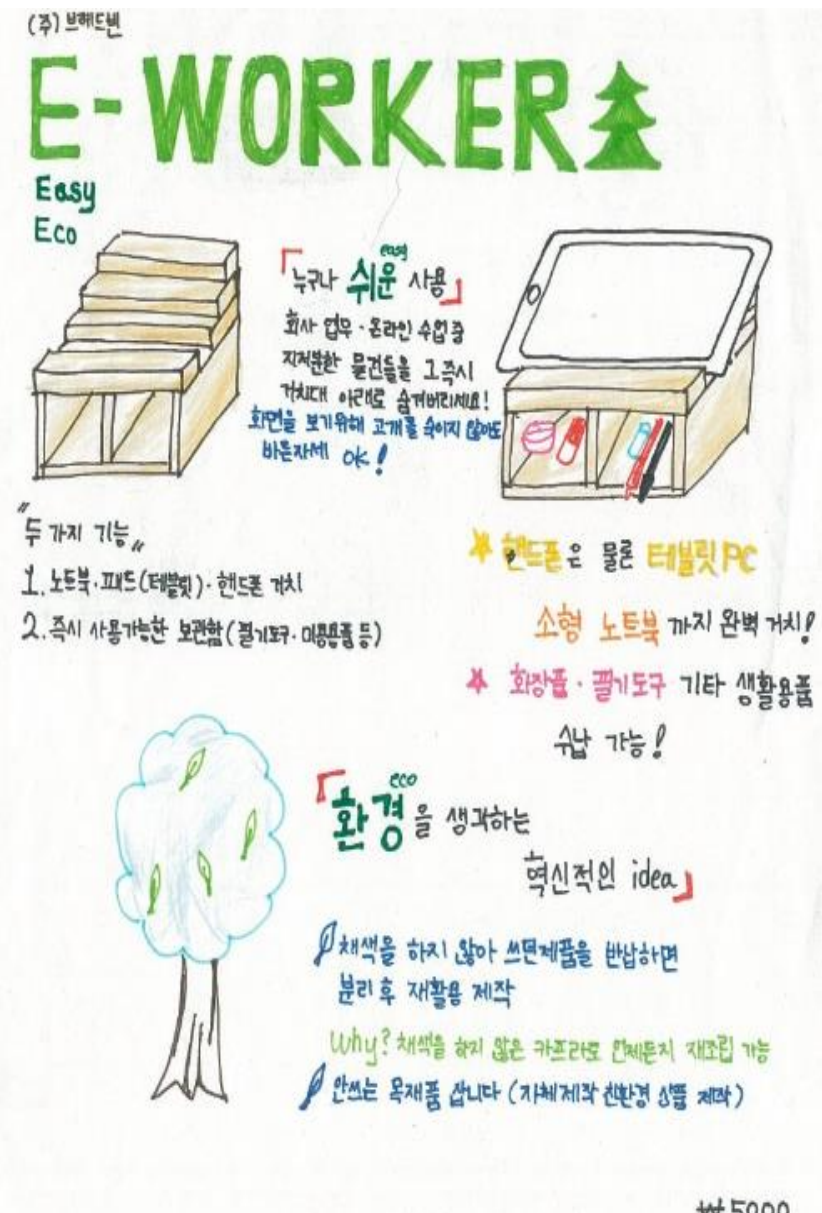 (주) 브헤드빈
E-WORKER
Easy
Eco
「누구나 쉬운 사용」
easy
회사 업무·온라인 수업 중
지저분한 물건들을 그 즉시
거치대 아래로 숨겨버리세요!
화면을 보기위해 고개를 숙이지 않아도
바른자세 OK!
"두 가지 기능"
1. 노트북·패드(테블릿)·핸드폰 거치
2. 즉시 사용가능한 보관함(필기도구·미용용품 등)
핸드폰은 물론 테블릿PC
소형 노트북 까지 완벽 거치!
화장품·필기도구 기타 생활용품
수납 가능!
「환경을 생각하는
eco
혁신적인 idea」
채색을 하지 않아 쓰던제품을 반납하면
분리 후 재활용 제작
Why? 채색을 하지 않은 카프라로 언제든지 재조립 가능
안쓰는 목재품 삽니다 (자체제작 친환경 상품 제작)
₩5000